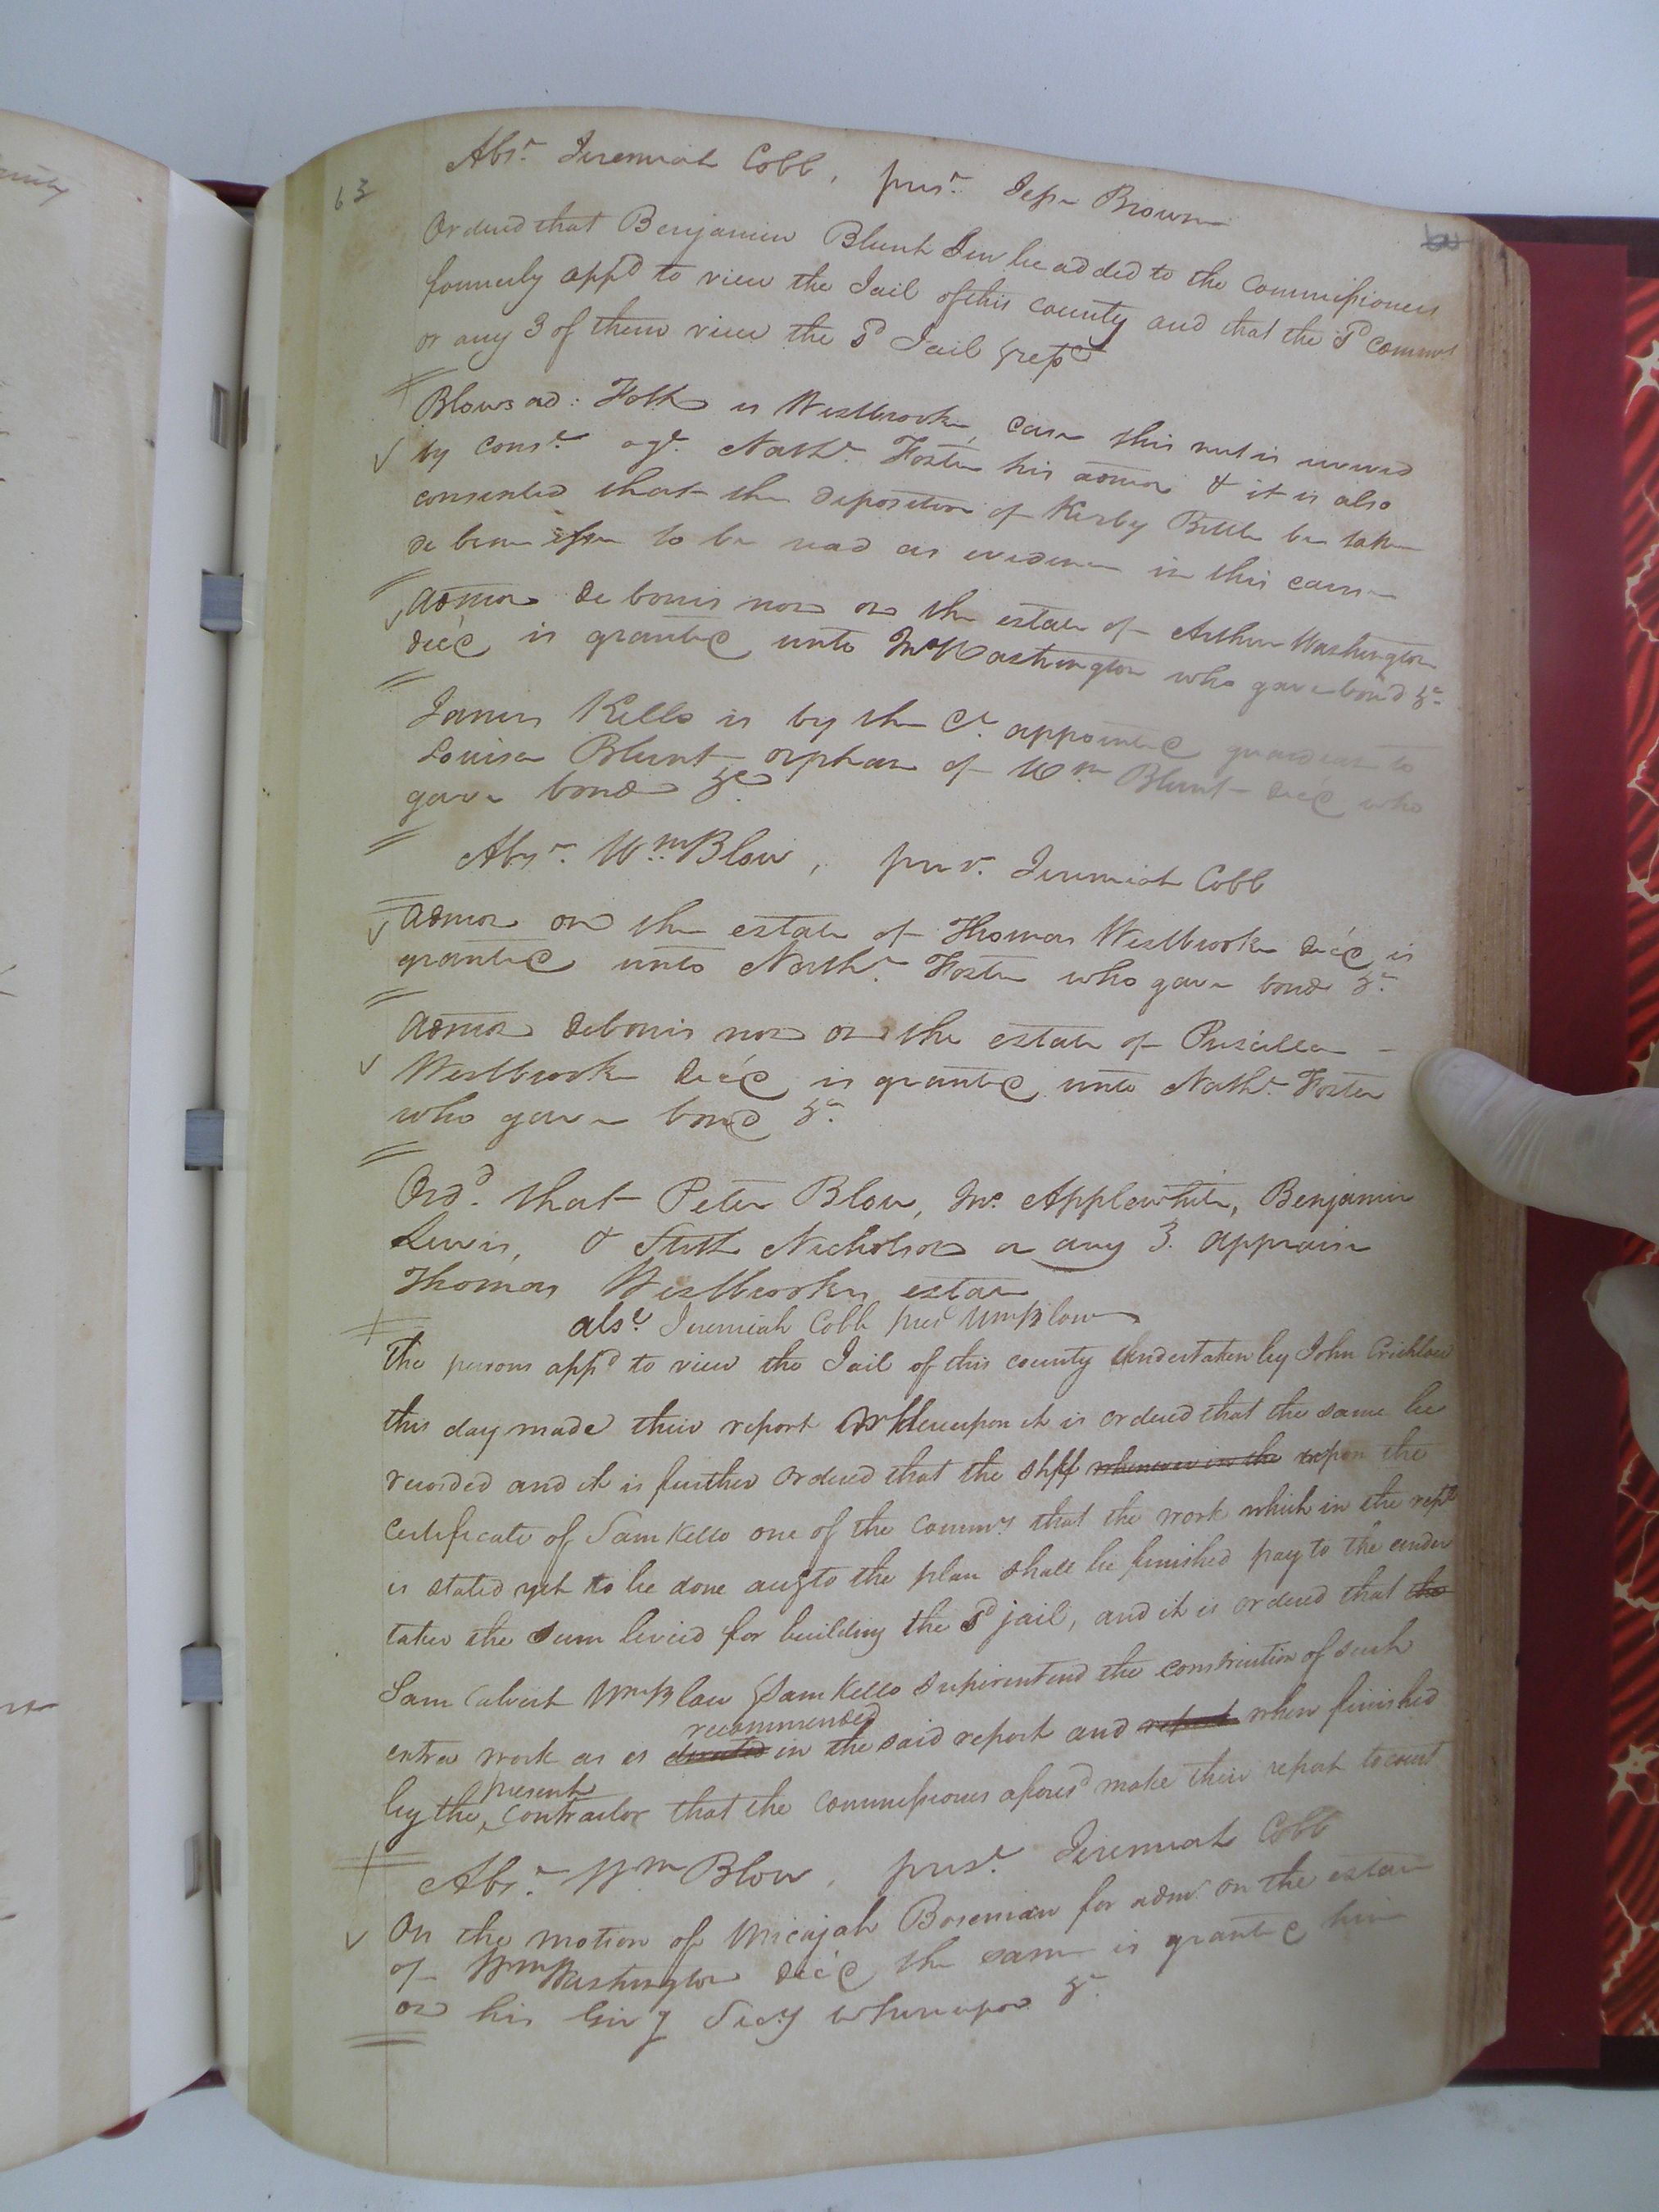 63
Abst. Jeremiah Cobb, prest. Jesse Brown
Ordered that Benjamin Blunt Senr be added to the Commissioners
formerly appd to view the Jail of this county and that the sd Commrs
or any 3 of them view the sd Jail & rept
Blows ad: Foth vs Westbrook, case this suit is revived
by const. agt. Nathl. Foster his admor & it is also
consented that the deposition of Kirby Bittle be taken
de bene esse to be read as evidence in this cause
admor de bonis non on the estate of Arthur Washington
decd is granted unto Jno Washington who gave bond &c
James Kello is by the Ct. appointed guardian to
Louisa Blunt orphan of Wm Blunt decd who
gave bond &c
Abst. Wm Blow, prest. Jeremiah Cobb
admor on the estate of Thomas Westbrook decd is
granted unto Nathl. Foster who gave bond &c.
admor debonis non on the estate of Priscilla
Westbrook decd is granted unto Nathl. Foster
who gave bond &c.
Ordd. that Peter Blow, Jno. Applewhite, Benjamin
Lewis, & Stith Nicholson or any 3. appraise
Thomas Westbrooks estate
abst. Jeremiah Cobb prest Wm Blow
The persons appd to view the Jail of this county undertaken by John Crichlow
this day made their report Whereupon it is ordered that the same be
recorded and it is further ordered that the shff whenever in the upon the
Certificate of Sam Kello one of the Commrs that the work which in the rept
is stated yet to be done accg to the plan shall be finished pay to the under
taker the sum levied for building the sd jail, and it is ordered that the
Sam Calvert Wm Blow & Sam Kello superintend the construction of such
recommended
extra work as is directed in the said report and report when finished
present
by the, contractor that the commissioners aforesd make their report to court
Abst. Wm Blow, prest. Jeremiah Cobb
On the motion of Micajah Boseman for admr. on the estate
of Wm Washington decd the same is granted him
on his givg Secy whereupon &c.